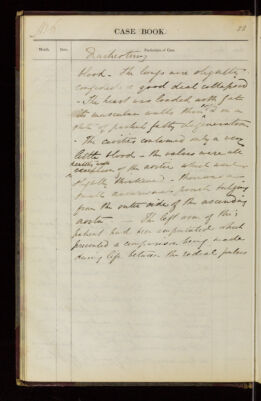 CASE BOOK.
Month. Date. Particulars of Case.
blood - The lungs were slightly
congested & a good deal collapsed
- The heart was loaded with fat
its muscular walls thin & in a
state of partial fatty degeneration
- The cavities contained only a very
little blood - the valves were all
healthy with
exception of the aortic which were
slightly thickened - There was a
small aneurismal pouch bulging
from the outer side of the ascending
aorta - The left arm of this
patient had been amputated which
prevented a comparison being made
during life between the radial pulses